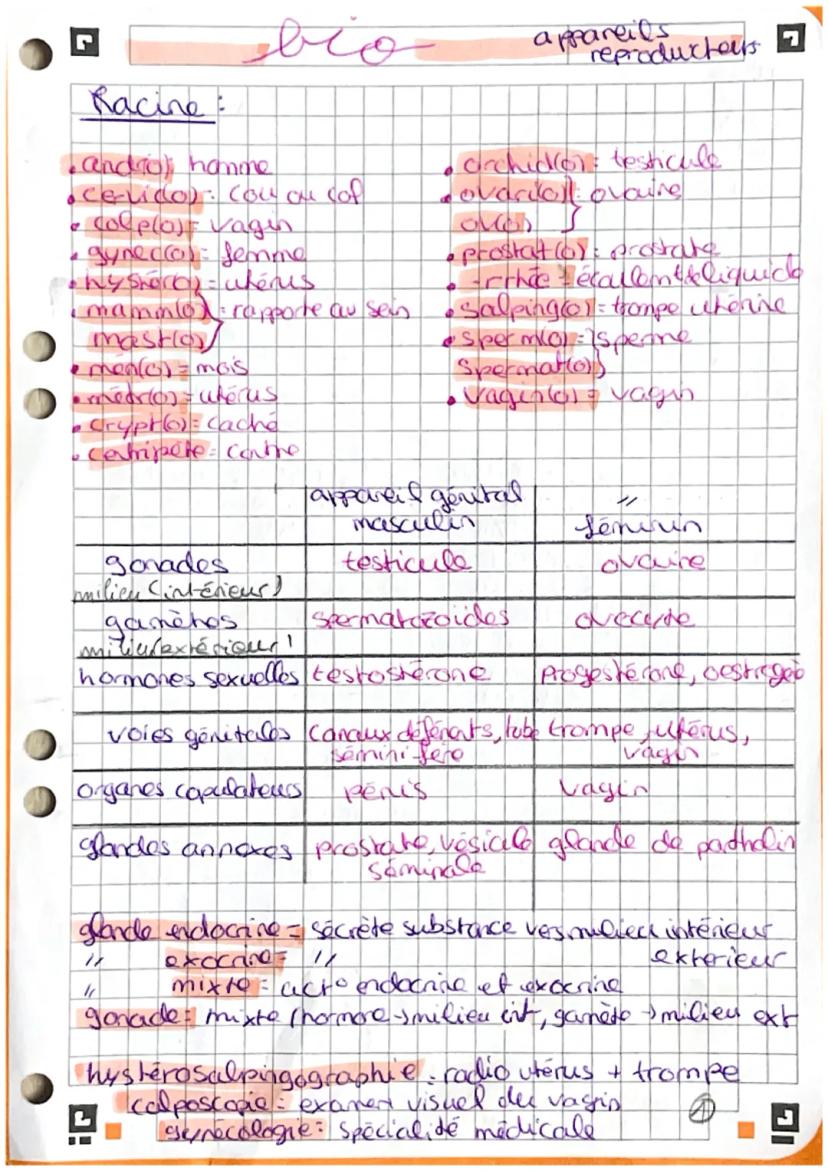 bio
appareils
reproducteurs
Racine :
• andr(o) : homme
• cervic(o) : cou ou col
• colp(o) = vagin
• gynéc(o) = femme
• hystér(o) = utérus
• mamm(o) } = rapporte au sein
mast(o)
• mén(o) = mois
• métr(o) = utérus
• crypt(o) = caché
• centripète = centre
• orchid(o) = testicule
• ovari(o) } : ovaire
ov(o)
• prostat(o) = prostate
• -rrhée = écoulemt de liquide
• salping(o) = trompe utérine
• sperm(o) = } sperme
spermat(o)
• vagin(o) = vagin
appareil génital masculin | " féminin
gonades | testicule | ovaire
milieu (intérieur)
gamètes | spermatozoïdes | ovocyte
milieu extérieur
hormones sexuelles | testostérone | progestérone, oestrogè
voies génitales | canaux déférents, tube séminifère | trompe, utérus, vagin
organes copulateurs | pénis | vagin
glandes annexes | prostate, vésicule séminale | glande de partholin
glande endocrine = sécrète substance vers milieu intérieur
" exocrine = " exterieur
" mixte = acto endocrine et exocrine
gonade = mixte (hormone → milieu int, gamète → milieu ext
hystérosalpingographie = radio utérus + trompe
colposcopie = examen visuel du vagin
gynécologie = spécialité médicale
1